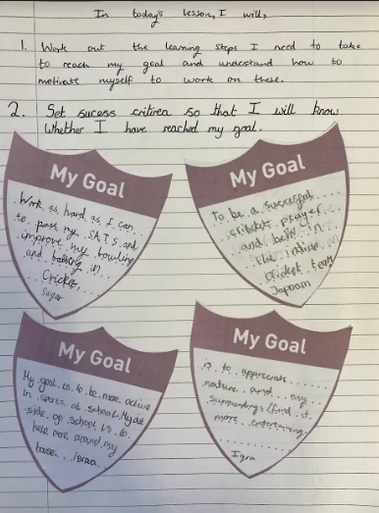 In today's lesson, I will,
1. Work out the learning steps I need to take
to reach my goal and understand how to
motivate myself to work on these.
2. Set sucess critirea so that I will know
whether I have reached my goal.
My Goal
Work as hard as I can
to pass my SATs and
improve my bowling
and batting in
Cricket.
My Goal
To be a successful
cricket player
and be in
the indian
cricket team
My Goal
My goal is to be more active
in sports at school. My out
side of school is to
help more around my
house.
My Goal
is to appreciate
nature and my
surroundings/find it
more entertaining
Iqra